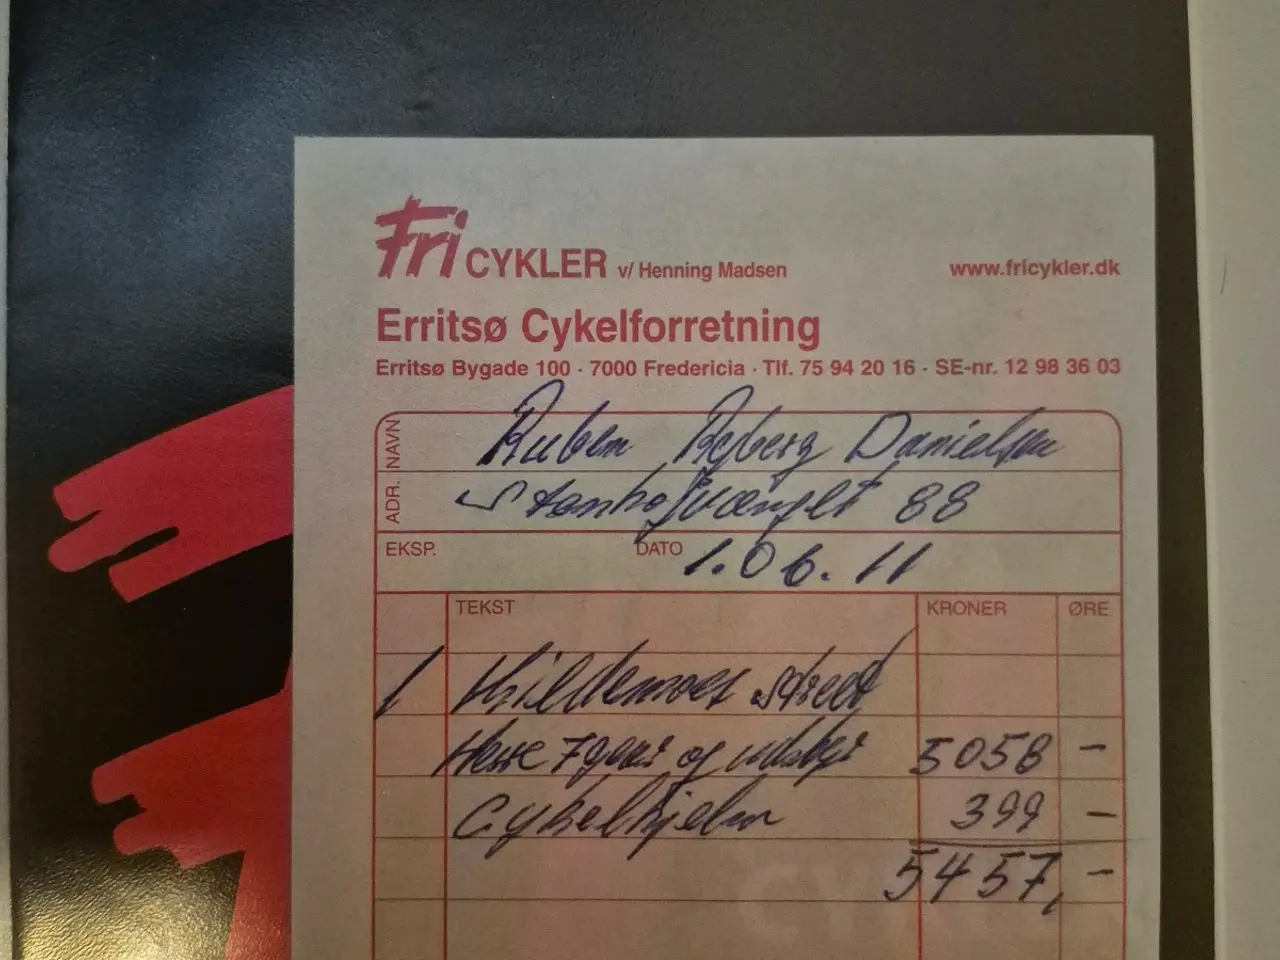 Fri CYKLER v/ Henning Madsen www.fricykler.dk
Erritsø Cykelforretning
Erritsø Bygade 100 · 7000 Fredericia · Tlf. 75 94 20 16 · SE-nr. 12 98 36 03
NAVN Ruben Danielsen
ADR. 88
EKSP. DATO 1.06.11
TEKST KRONER ØRE
1 street
Herre 7 gear og 5058 -
Cykelhjelm 399 -
5457,-